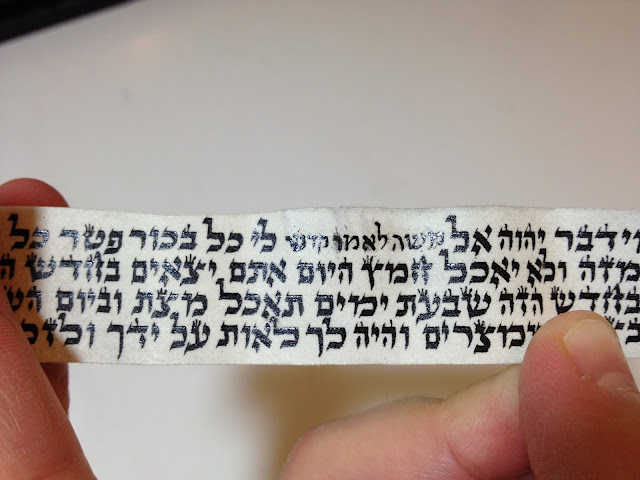 וידבר יהוה אל משה לאמר קדש לי כל בכור פטר כל
מזה ולא יאכל חמץ היום אתם יצאים בחדש ה
בחדש הזה שבעת ימים תאכל מצת וביום הש
ממצרים והיה לך לאות על ידך ולזכ